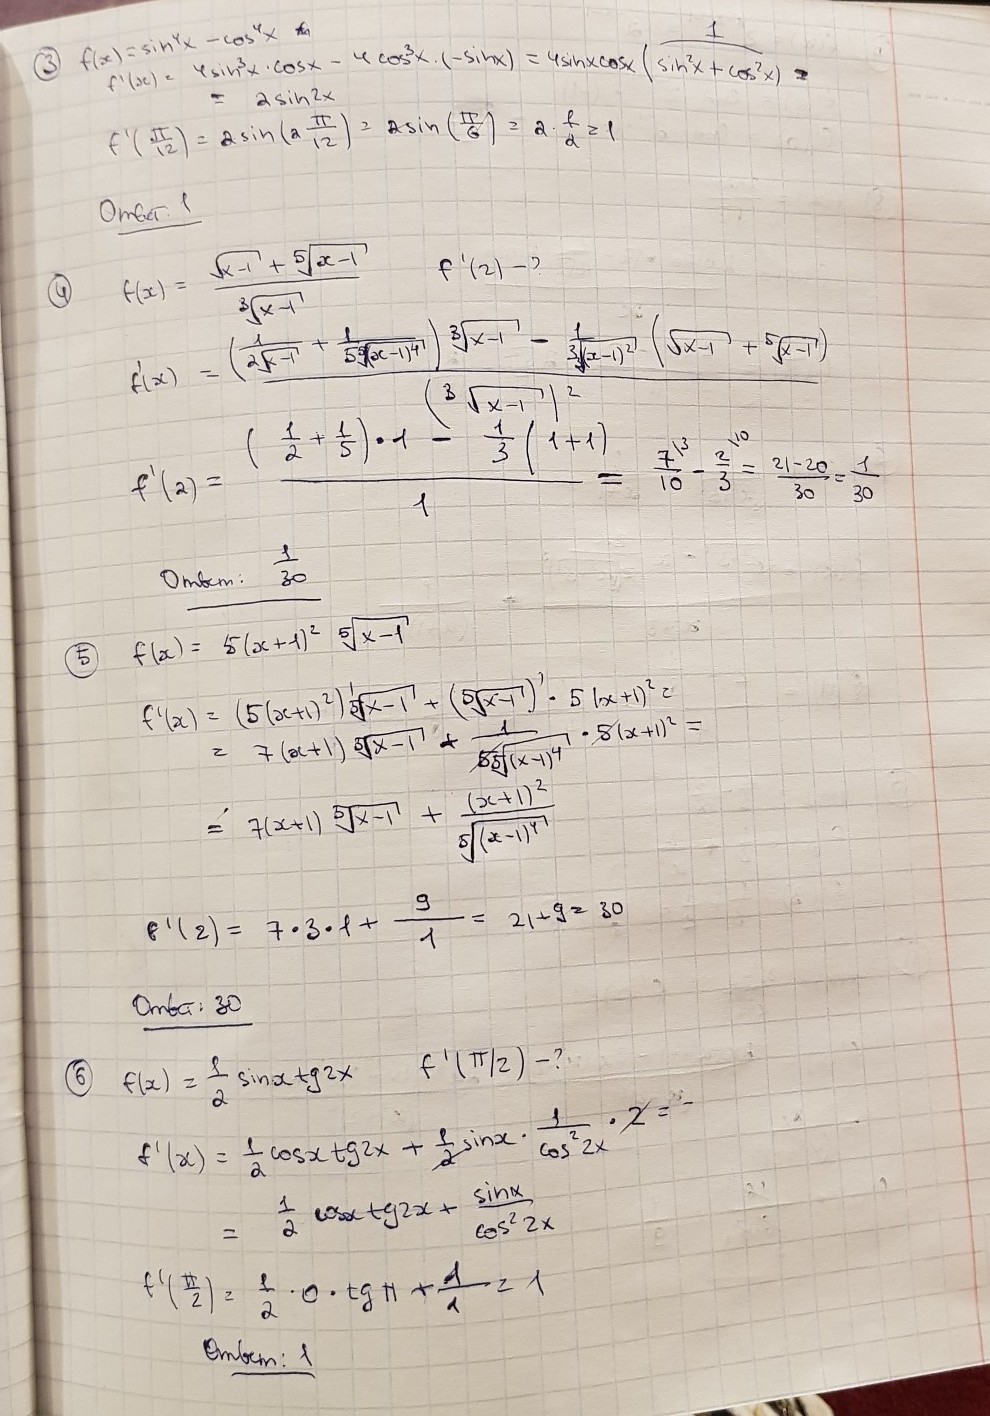 ③ f(x)=sin⁴x − cos⁴x
f'(x) = 4sin³x·cosx − 4cos³x·(−sinx) = 4sinxcosx (sin²x + cos²x) =
1
= 2sin2x
f'(π/12) = 2sin(2 π/12) = 2sin(π/6) = 2·1/2 = 1
Ответ: 1
④ f(x) = (√(x−1) + ⁵√(x−1)) / ³√(x−1)   f'(2) −?
f'(x) = ((1/(2√(x−1)) + 1/(5⁵√(x−1)⁴)) ³√(x−1) − 1/(3³√(x−1)²) · (√(x−1) + ⁵√(x−1))) / (³√(x−1))²
f'(2) = ((1/2 + 1/5)·1 − 1/3 (1+1)) / 1 = 7/10 \3 − 2/3 \10 = (21−20)/30 = 1/30
Ответ: 1/30
⑤ f(x) = 5(x+1)² ⁵√(x−1)
f'(x) = (5(x+1)²)' ⁵√(x−1) + (⁵√(x−1))' · 5(x+1)² =
= 7(x+1) ⁵√(x−1) + 1/(5⁵√(x−1)⁴) · 5(x+1)² =
= 7(x+1) ⁵√(x−1) + (x+1)²/⁵√(x−1)⁴
f'(2) = 7·3·1 + 9/1 = 21+9 = 30
Ответ: 30
⑥ f(x) = 1/2 sinx tg2x   f'(π/2) −?
f'(x) = 1/2 cosx tg2x + 1/2 sinx · 1/cos²2x · 2 =
= 1/2 cosx tg2x + sinx/cos²2x
f'(π/2) = 1/2 · 0 · tgπ + 1/1 = 1
Ответ: 1